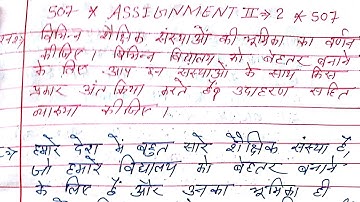 507 * ASSIGNMENT II ⇒ 2 * 507
विभिन्न शैक्षिक संस्थाओं की भूमिका का वर्णन
कीजिए। विभिन्न विद्यालय को बेहतर बनाने
के लिए आप इन संस्थाओं के साथ किस
प्रकार अंत क्रिया करते हैं? उदाहरण सहित
व्याख्या कीजिए।
हमारे देश में बहुत सारे शैक्षिक संस्था हैं,
जो हमारे विद्यालय को बेहतर बनाने
के लिए हैं और उनका भूमिका ही